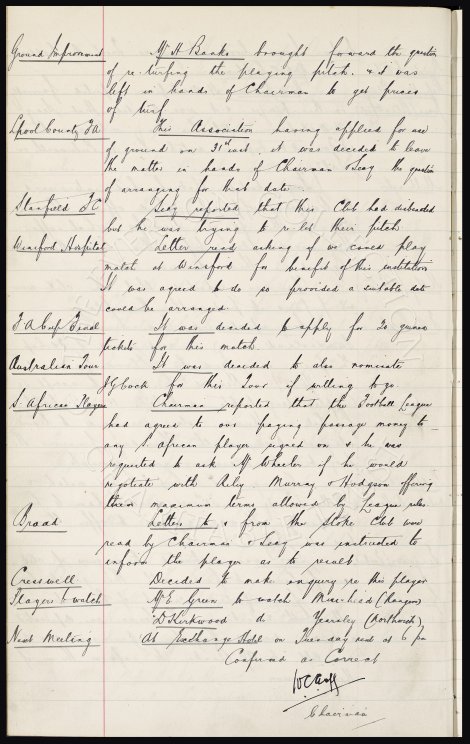 Ground Improvement Mr H Banks brought forward the question
of re-turfing the playing pitch. & it was
left in hands of Chairman to get prices
of turf.
Lpool County F.A. This Association having applied for use
of ground on 31st inst. it was decided to leave
the matter in hands of Chairman & Secy the question
of arranging for that date
Stanfield F C Secy reported that this Club had disbanded
but he was trying to re-let their pitch
Winsford Hospital Letter read asking if we could play
match at Winsford for benefit of this institution
It was agreed to do so provided a suitable date
could be arranged.
F A Cup Final It was decided to apply for 20 guinea
tickets for this match
Australian Tour It was decided to also nominate
J G Cock for this Tour if willing to go
S African Players Chairman reported that the Football League
had agreed to our paying passage money to
any S African player signed on & he was
requested to ask Mr Wheeler if he would
negotiate with Riley, Murray & Hodgson offering
them maximum terms allowed by League rules
Broad Letters to & from the Stoke Club were
read by Chairman & Secy was instructed to
inform the player as to result
Cresswell Decided to make enquiry re this player
Players to watch Mr E Green to watch Muirhead (Rangers)
" D Kirkwood do Yearsley (Northwich)
Next Meeling At Exchange Hotel on Tuesday next at 6 pm
Confirmed as Correct
Chairman